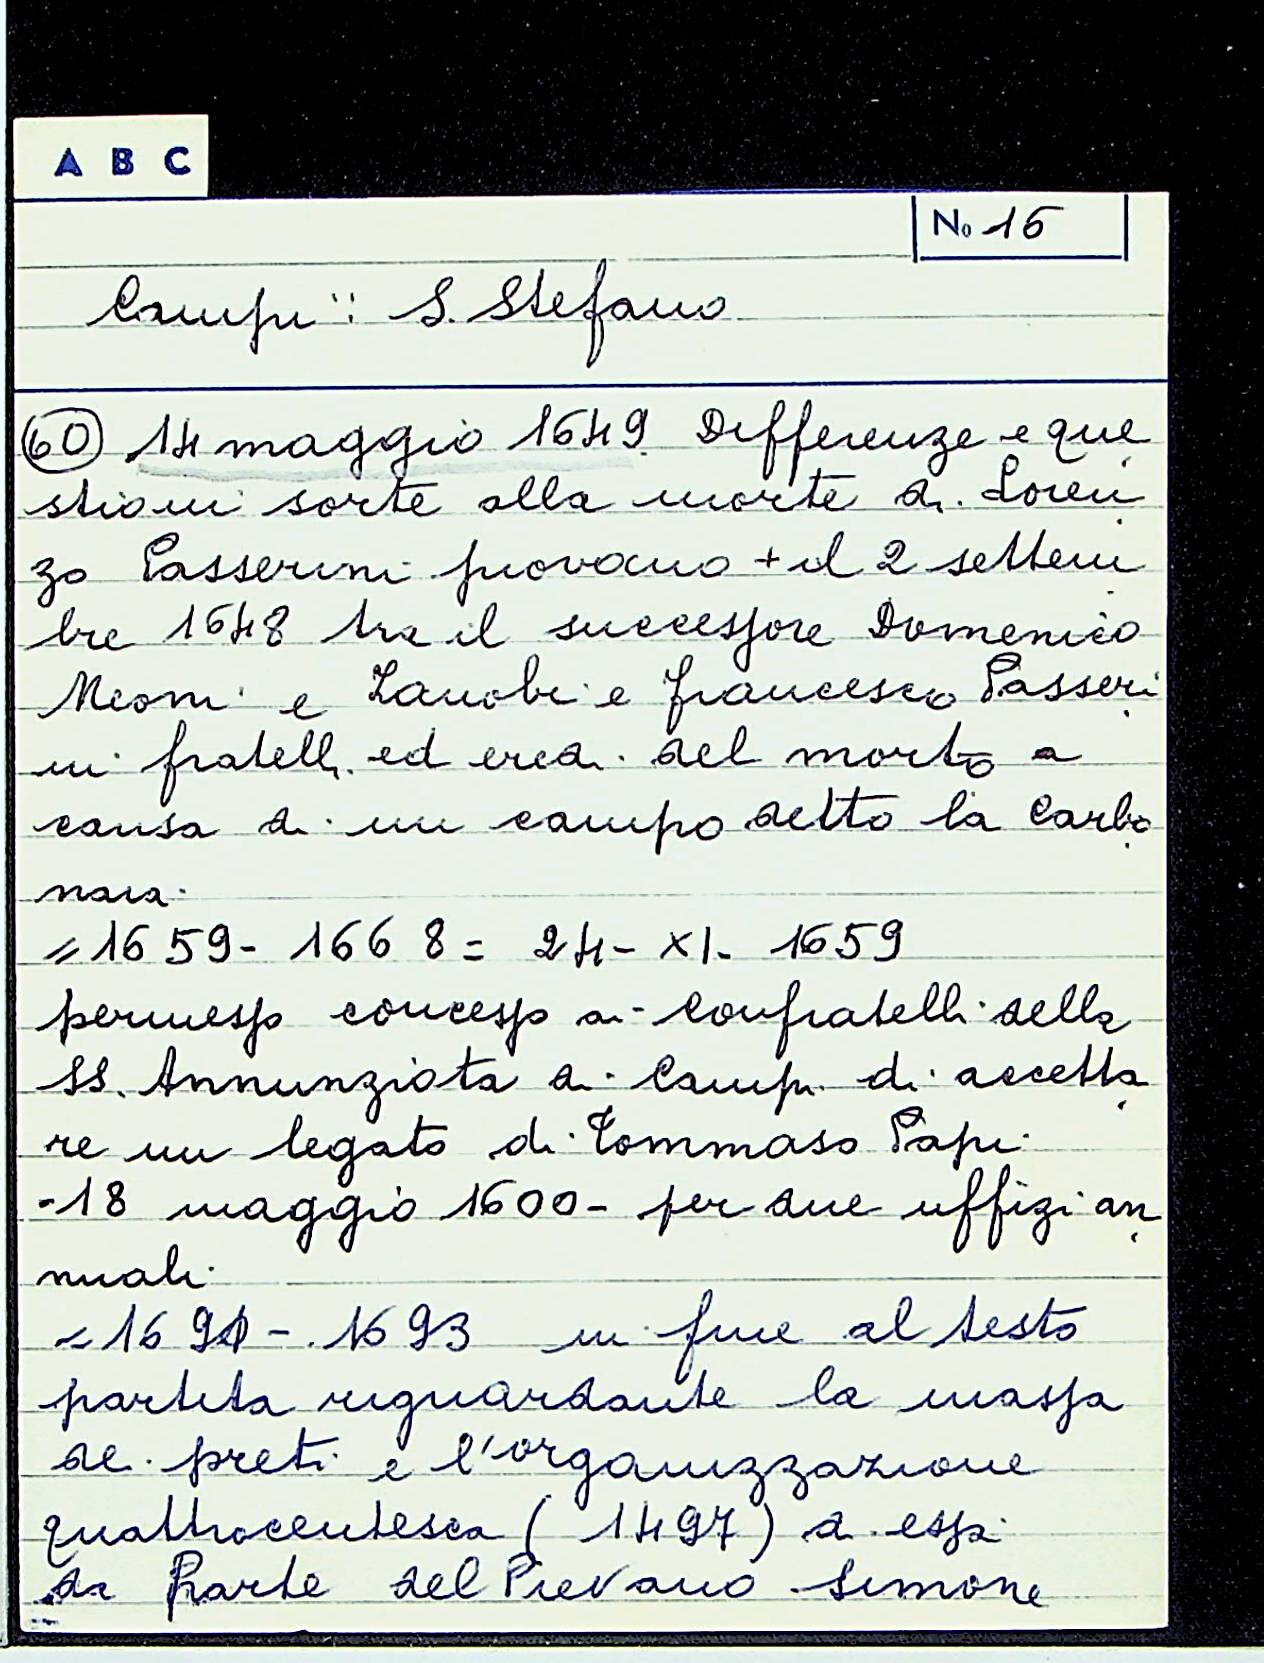 A B C
No 16
Campi: S. Stefano
60) 14 maggio 1649 Differenze e que
stioni sorte alla morte di Loren
zo Passerini piovano + il 2 settem
bre 1648 tra il successore Domenico
Meoni e Zanobi e Francesco Passeri
ni fratelli ed eredi del morto a
causa di un campo detto la Carbo
naia.
= 1659 - 1668 = 24 - XI - 1659
permesso concesso ai Confratelli della
SS. Annunziata di Campi di accetta
re un legato di Tommaso Papi
- 18 maggio 1600 - per due uffizi an
nuali.
= 1691 - 1693 in fine al testo
partita riguardante la massa
dei preti e l'organizzazione
quattrocentesca (1497) di essa
da Parte del Pievano Simone